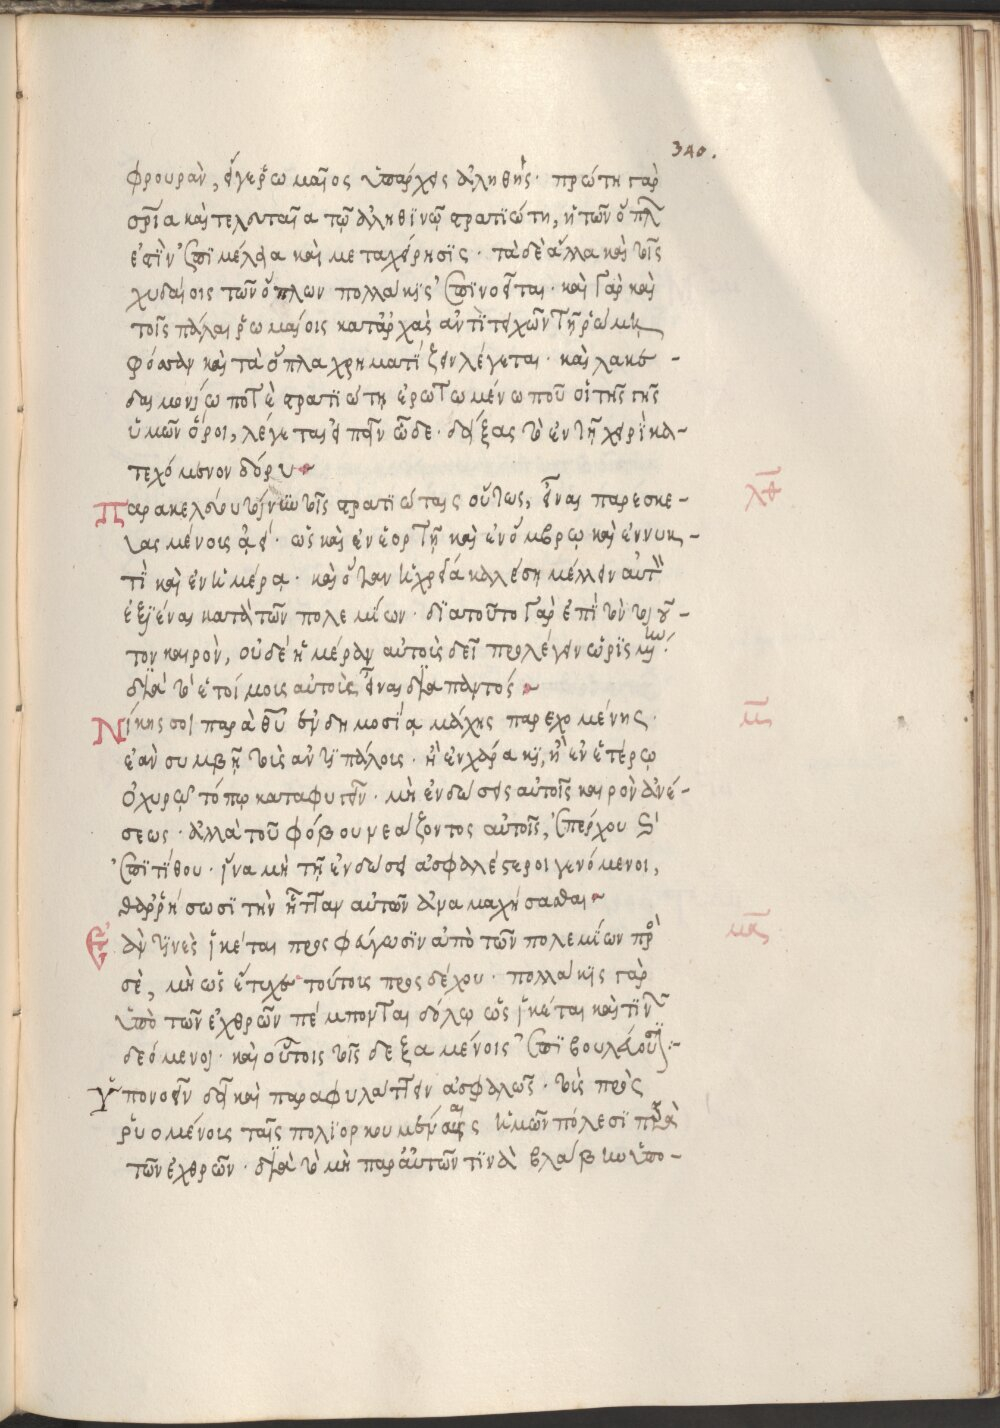 340.
φρουρὰν, εἴγε ῥωμαῖος ὑπάρχεις ἀληθής· πρώτη γὰρ
καὶ τελευταία τῷ ἀληθινῷ στρατιώτῃ, ἡ τῶν ὅπλων
ἐστὶν ἐπιμέλεια καὶ μεταχείρησις· τὰ δὲ ἄλλα καὶ τοῖς
χυδαίοις τῶν ὅπλων πολλάκις ἐπινοεῖται· καὶ γὰρ καὶ
τοῖς πάλαι ῥωμαίοις κατ' ἀρχὰς ἀντιτεχῶν τῇ ῥώμῃ
καὶ τὰ ὅπλα χρηματίζειν λέγεται· καὶ λακε-
δαιμονίῳ ποτὲ στρατιώτῃ ἐρωτωμένῳ ποῦ οἱ τῆς γῆς
ὑμῶν ὅροι, λέγεται εἰπεῖν ὧδε· δείξας τὸ ἐν τῇ χειρὶ κα-
τεχόμενον δόρυ
Παρακελεύου τοίνυν τοῖς στρατιώταις οὕτως, εἶναι παρεσκε-
υασμένοις ἀεί· ὡς καὶ ἐν ἑορτῇ καὶ ἐν ὄμβρῳ καὶ ἐν νυκ-
τὶ καὶ ἐν ἡμέρᾳ· καὶ ὅταν ἡ χρεία καλέσῃ μέλλειν αὐτοὺς
ἐξιέναι κατὰ τῶν πολεμίων· διατοῦτο γὰρ ἐπὶ τὸν τοιοῦ-
τον καιρὸν, οὐδὲ ἡμέραν αὐτοῖς δεῖ προλέγειν ὡρισμένην·
διὰ τὸ ἑτοίμοις αὐτοὺς εἶναι διαπαντός
Νίκης σοι παρὰ θεοῦ ἐν δημοσίᾳ μάχης παρεχομένης·
ἐὰν συμβῇ τοῖς ἀντιπάλοις· ἢ ἐν χάρακι, ἢ ἐν ἑτέρῳ
ὀχυρῷ τόπῳ καταφυγεῖν· μὴ ἐνδώσεις αὐτοῖς καιρὸν ἀνέ-
σεως· ἀλλὰ τοῦ φόβου νεάζοντος αὐτοῖς, ἐπέρχου καὶ
ἐπιτίθου· ἵνα μὴ τῇ ἐνδώσει ἀσφαλέστεροι γενόμενοι,
θαρρήσωσι τὴν ἧτταν αὐτῶν ἀναμαχήσασθαι
Ἐάν τινες ἱκέται προσφύγωσιν ἀπὸ τῶν πολεμίων πρὸς
σὲ, μὴ ὡς ἔτυχε τούτοις προσδέχου· πολλάκις γὰρ
ὑπὸ τῶν ἐχθρῶν πέμπονται δόλῳ ὡς ἱκέται καί τιν
δεόμενοι· καὶ οὗτοι τοῖς δεξαμένοις ἐπιβουλεύουσι:-
Ὑπονοεῖν δεῖ καὶ παραφυλάττειν ἀσφαλῶς· τοῖς προς
ρυομένοις ταῖς πολιορκουμέναις ἡμῶν πόλεσι παρὰ
τῶν ἐχθρῶν· διὰ τὸ μὴ παρ' αὐτῶν τινὰ βλάβην ὑπο-
λθ
μ
μα